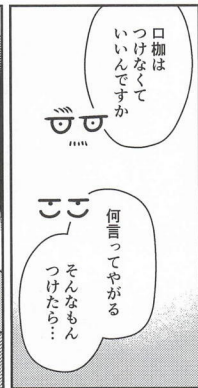 口枷は
つけなくて
いいんですか
何言ってやがる
そんなもん
つけたら…